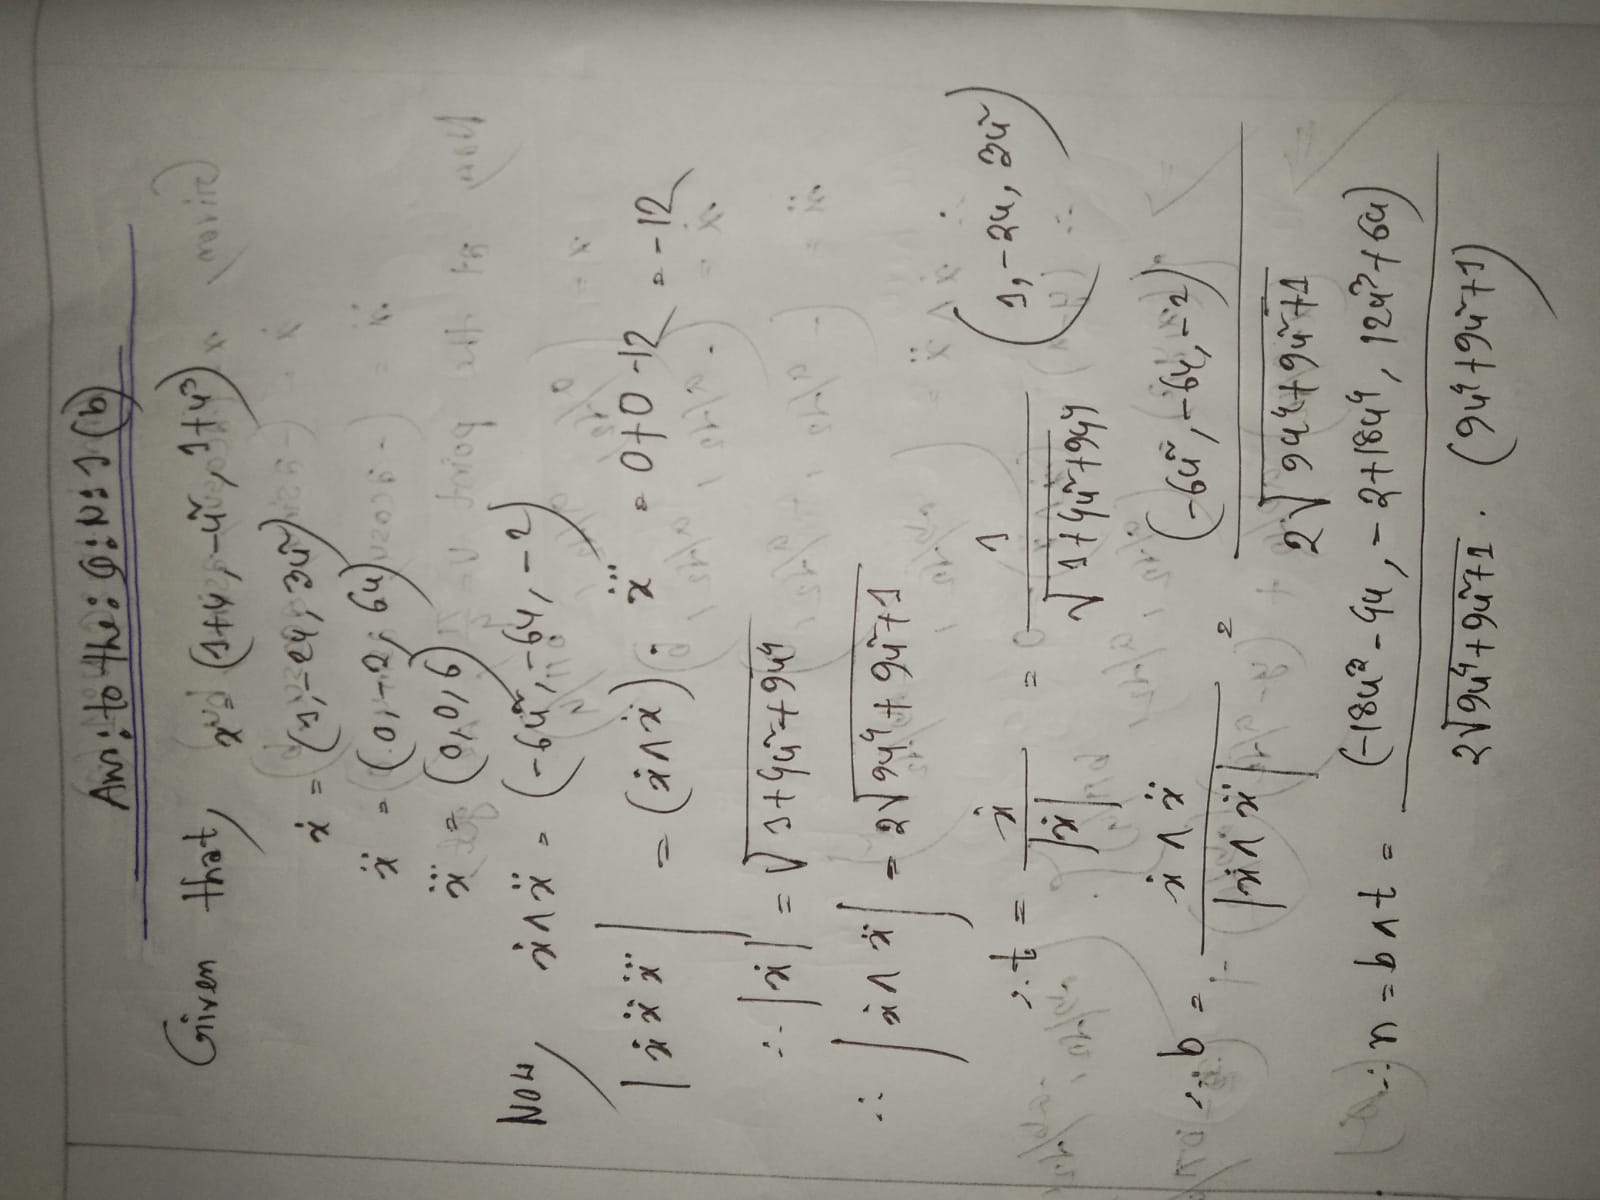 Ans: to the: Q: N: 1 (b)
Given that, x = (1+u, -u², 1+u³)
ẋ = (1, -2u, 3u²)
ẍ = (0, -2, 6u)
x⃛ = (0, 0, 6)
Now, ẋ ∧ ẍ = (-6u², -6u, -2)
|ẋ ẍ x⃛| = (ẋ ∧ ẍ) · x⃛ = 0+0-12 = -12
∴ |ẋ| = √(1+4u²+9u⁴)
∴ |ẋ ∧ ẍ| = 2√(9u⁴+9u²+1)
∴ t = ẋ / |ẋ| = 1 / √(1+4u²+9u⁴) (1, -2u, 3u²)
∴ b = ẋ ∧ ẍ / |ẋ ∧ ẍ| = (-6u², -6u, -2) / 2√(9u⁴+9u²+1)
∴ n = b ∧ t = (-18u³-4u, -2+18u⁴, 12u³+6u) / 2√(9u⁴+9u²+1) · (9u⁴+9u²+1)